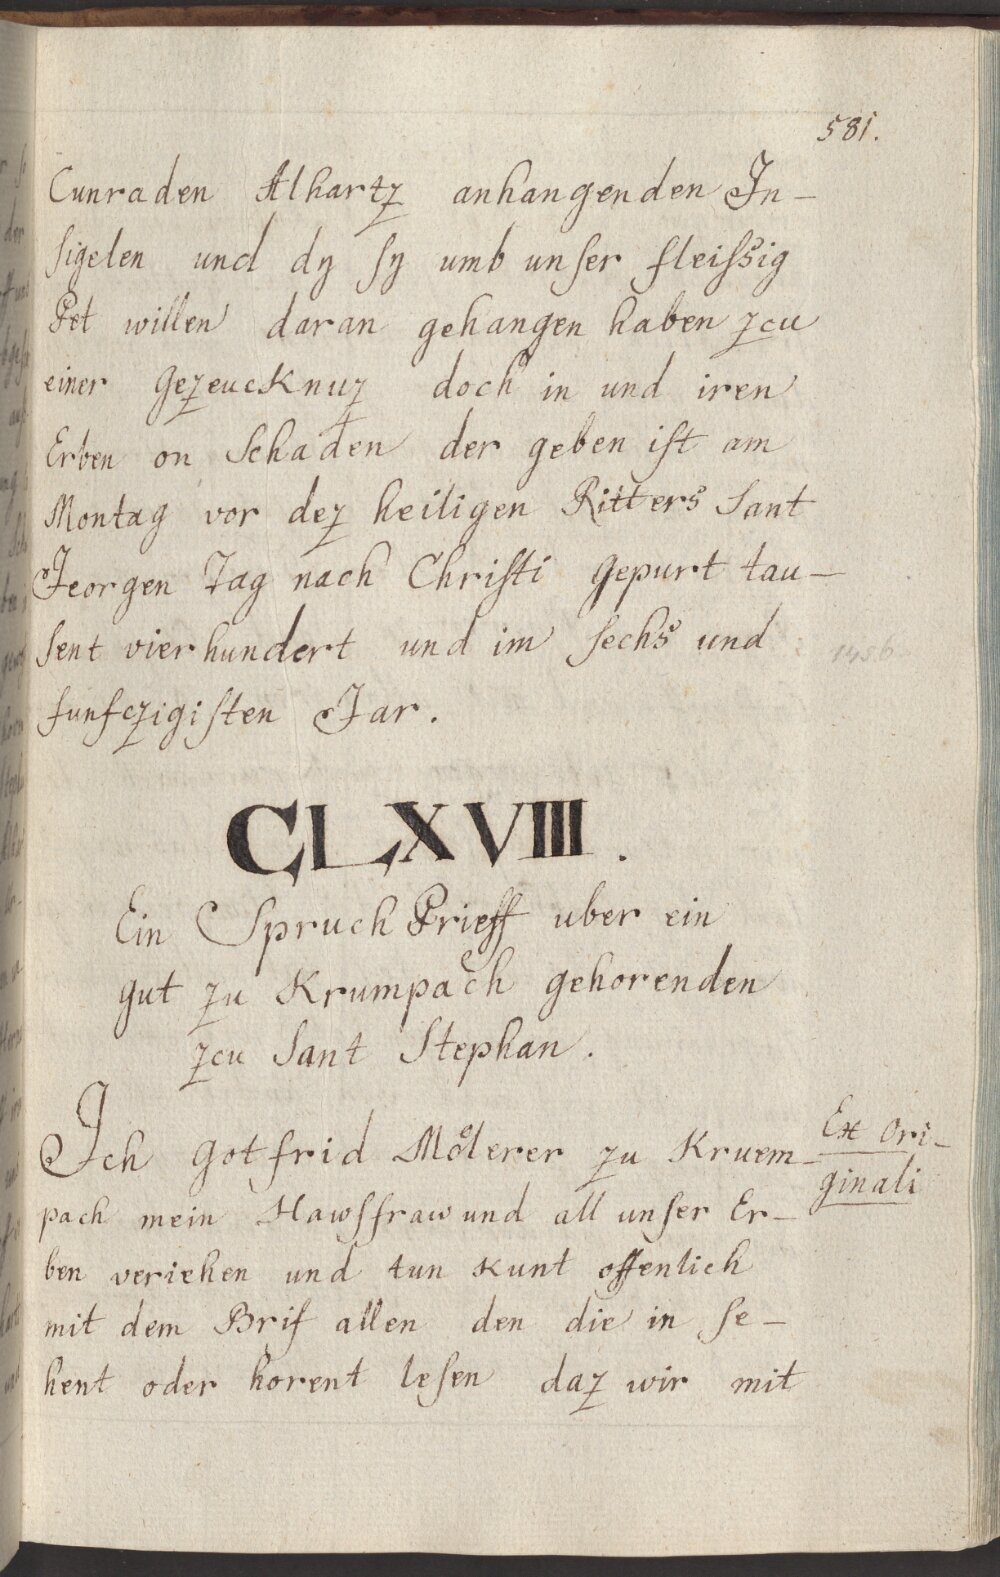 581.
Cunraden Alhartz anhangenden In-
sigelen und dy sy umb unser fleissig
Pet willen daran gehangen haben zcu
einer gezeucknuz doch in und iren
Erben on Schaden der geben ist am
Montag vor dez heiligen Ritters Sant
Jeorgen Tag nach Christi gepurt tau-
sent vierhundert und im sechs und
funfczigisten Jar.
1456
CLXVIII.
Ein Spruch Prieff uber ein
gut zu Krumpach gehorenden
zcu Sant Stephan.
Ich Gotfrid Mölerer zu Kruem-
pach mein Hawsfraw und all unser Er-
ben veriehen und tun kunt offenlich
mit dem Brif allen den die in se-
hent oder horent lesen daz wir mit
Ex Ori-
ginali